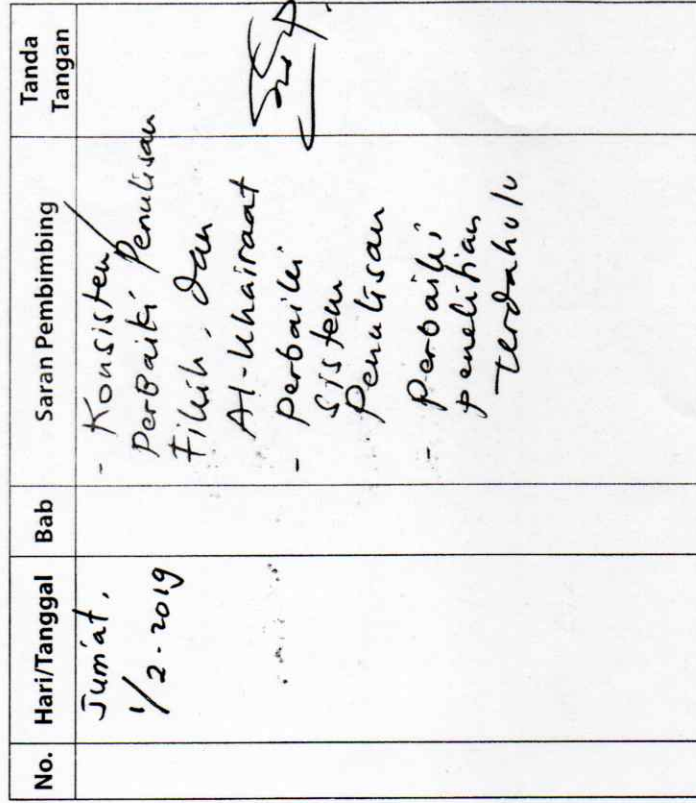 No. Hari/Tanggal Bab Saran Pembimbing Tanda Tangan
Jum'at,
1/2-2019
- Konsisten/
Perbaiki Penulisan
Fikih, dan
Al-Khairaat
- Perbaiki
Sistem
Penulisan
- perbaiki
penelitian
terdahulu